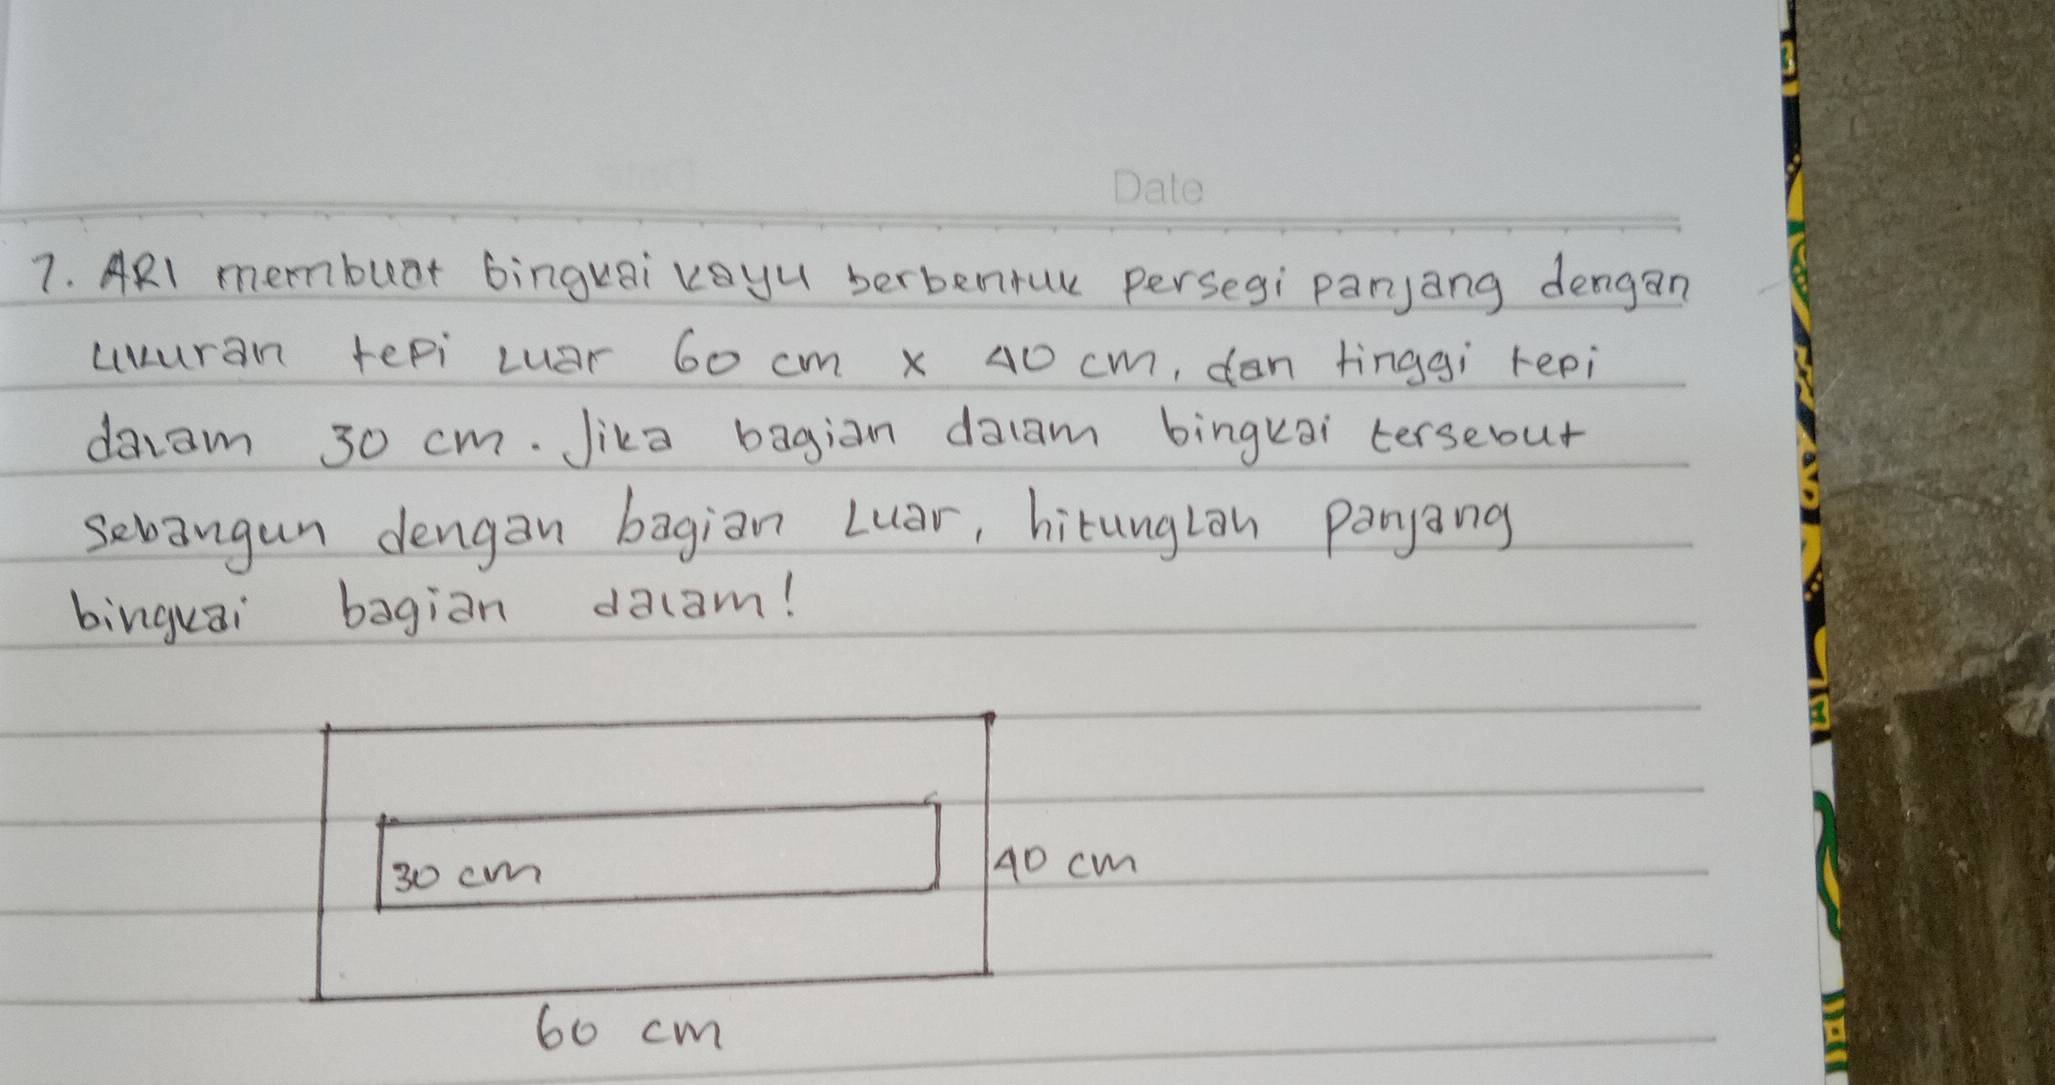 Date
7. ARI membuat bingkai kayu berbentuk persegi panjang dengan
ukuran tepi luar 60 cm x 40 cm, dan tinggi tepi
dalam 30 cm. Jika bagian dalam bingkai tersebut
sebangun dengan bagian Luar, hitungLah panjang
bingkai bagian dalam!
30 cm
40 cm
60 cm